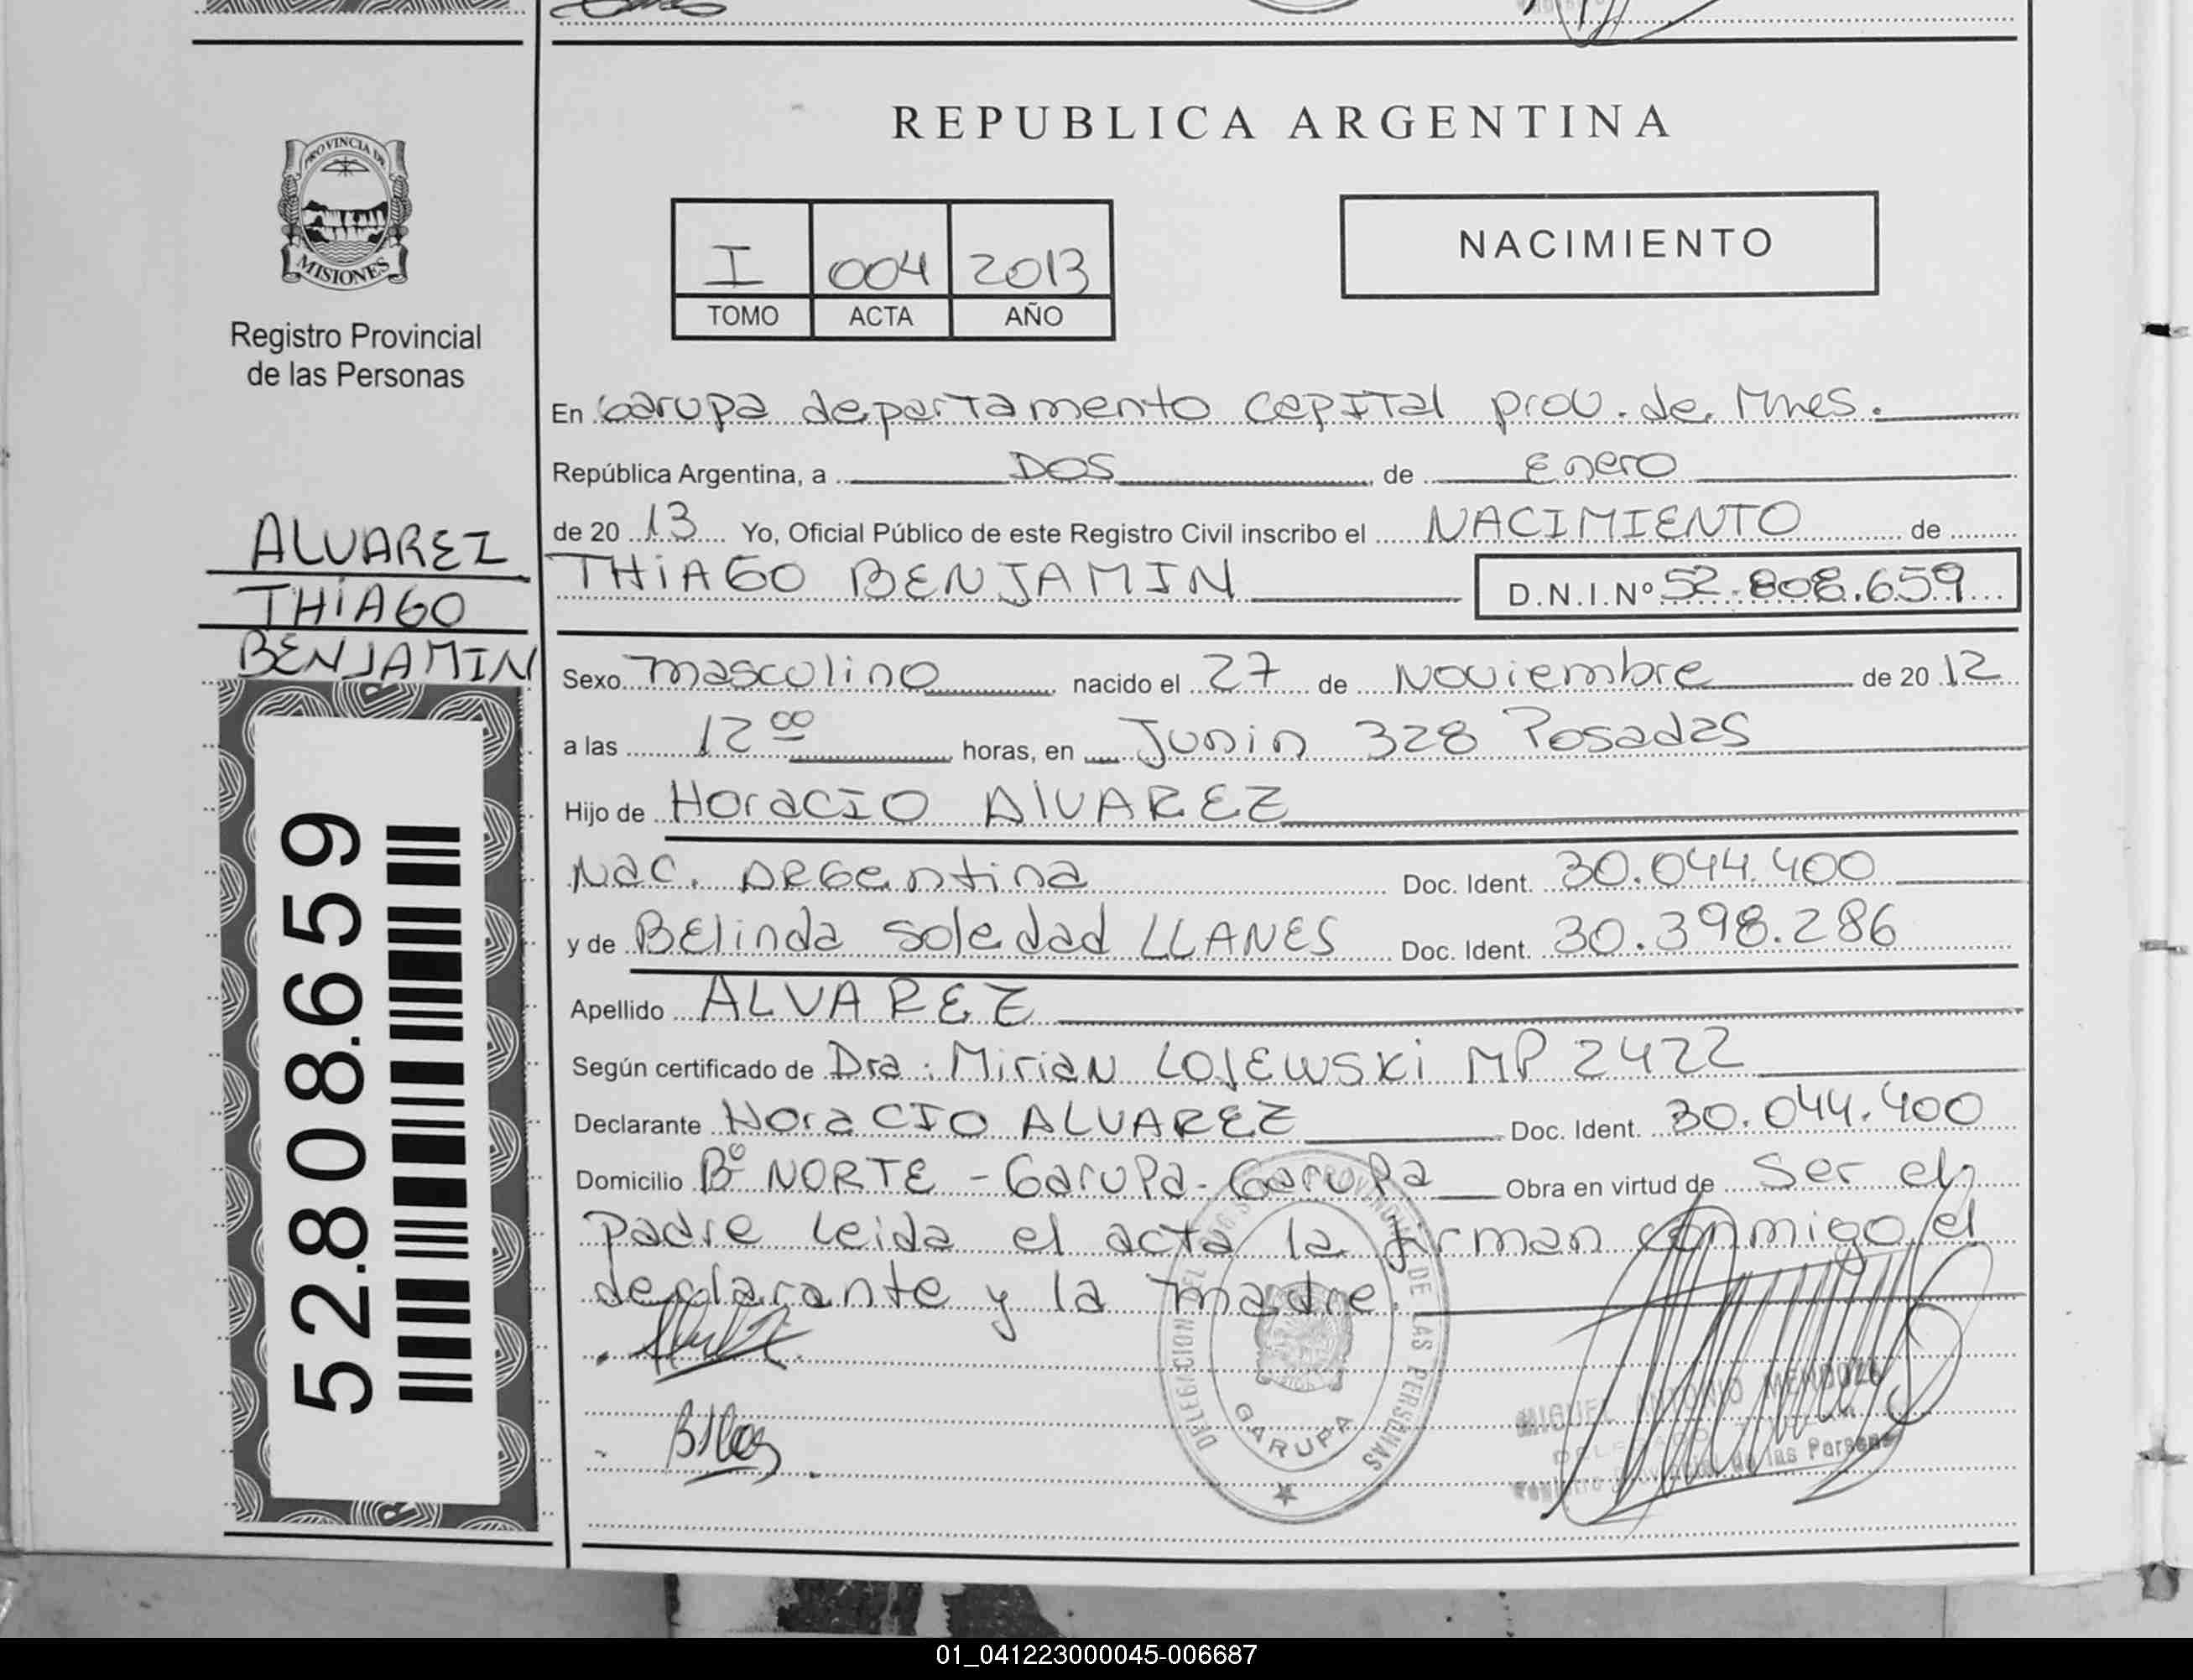 REPUBLICA ARGENTINA
PROVINCIA DE
MISIONES
Registro Provincial
de las Personas
I 004 2013
TOMO ACTA AÑO
NACIMIENTO
En Garupa departamento CapITal prov. de Mnes.
República Argentina, a DOS de Enero
de 20 13 Yo, Oficial Público de este Registro Civil inscribo el NACIMIENTO de
THIAGO BENJAMIN D.N.I.Nº 52.808.659
ALVAREZ
THIAGO
BENJAMIN
Sexo masculino nacido el 27 de Noviembre de 20 12
a las 12 00 horas, en Junin 328 Posadas
Hijo de HoraCIO AlVAREZ
Nac. ARGentina Doc. Ident. 30.044.400
y de BElinda Soledad LLANES Doc. Ident. 30.398.286
Apellido ALVAREZ
Según certificado de Dra: Mirian LOJEWSKi MP 2422
Declarante HoraCIO ALVAREZ Doc. Ident. 30.044.400
Domicilio Bº NORTE - Garupa - Garupa Obra en virtud de Ser el
padre Leida el acta la firman conmigo el
declarante y la madre.
52.808.659
DELEGACION DEL REGISTRO PROVINCIAL DE LAS PERSONAS
GARUPA
MIGUEL ANTONIO MENDOZA
DELEGADO
Registro Provincial de las Personas
01_041223000045-006687